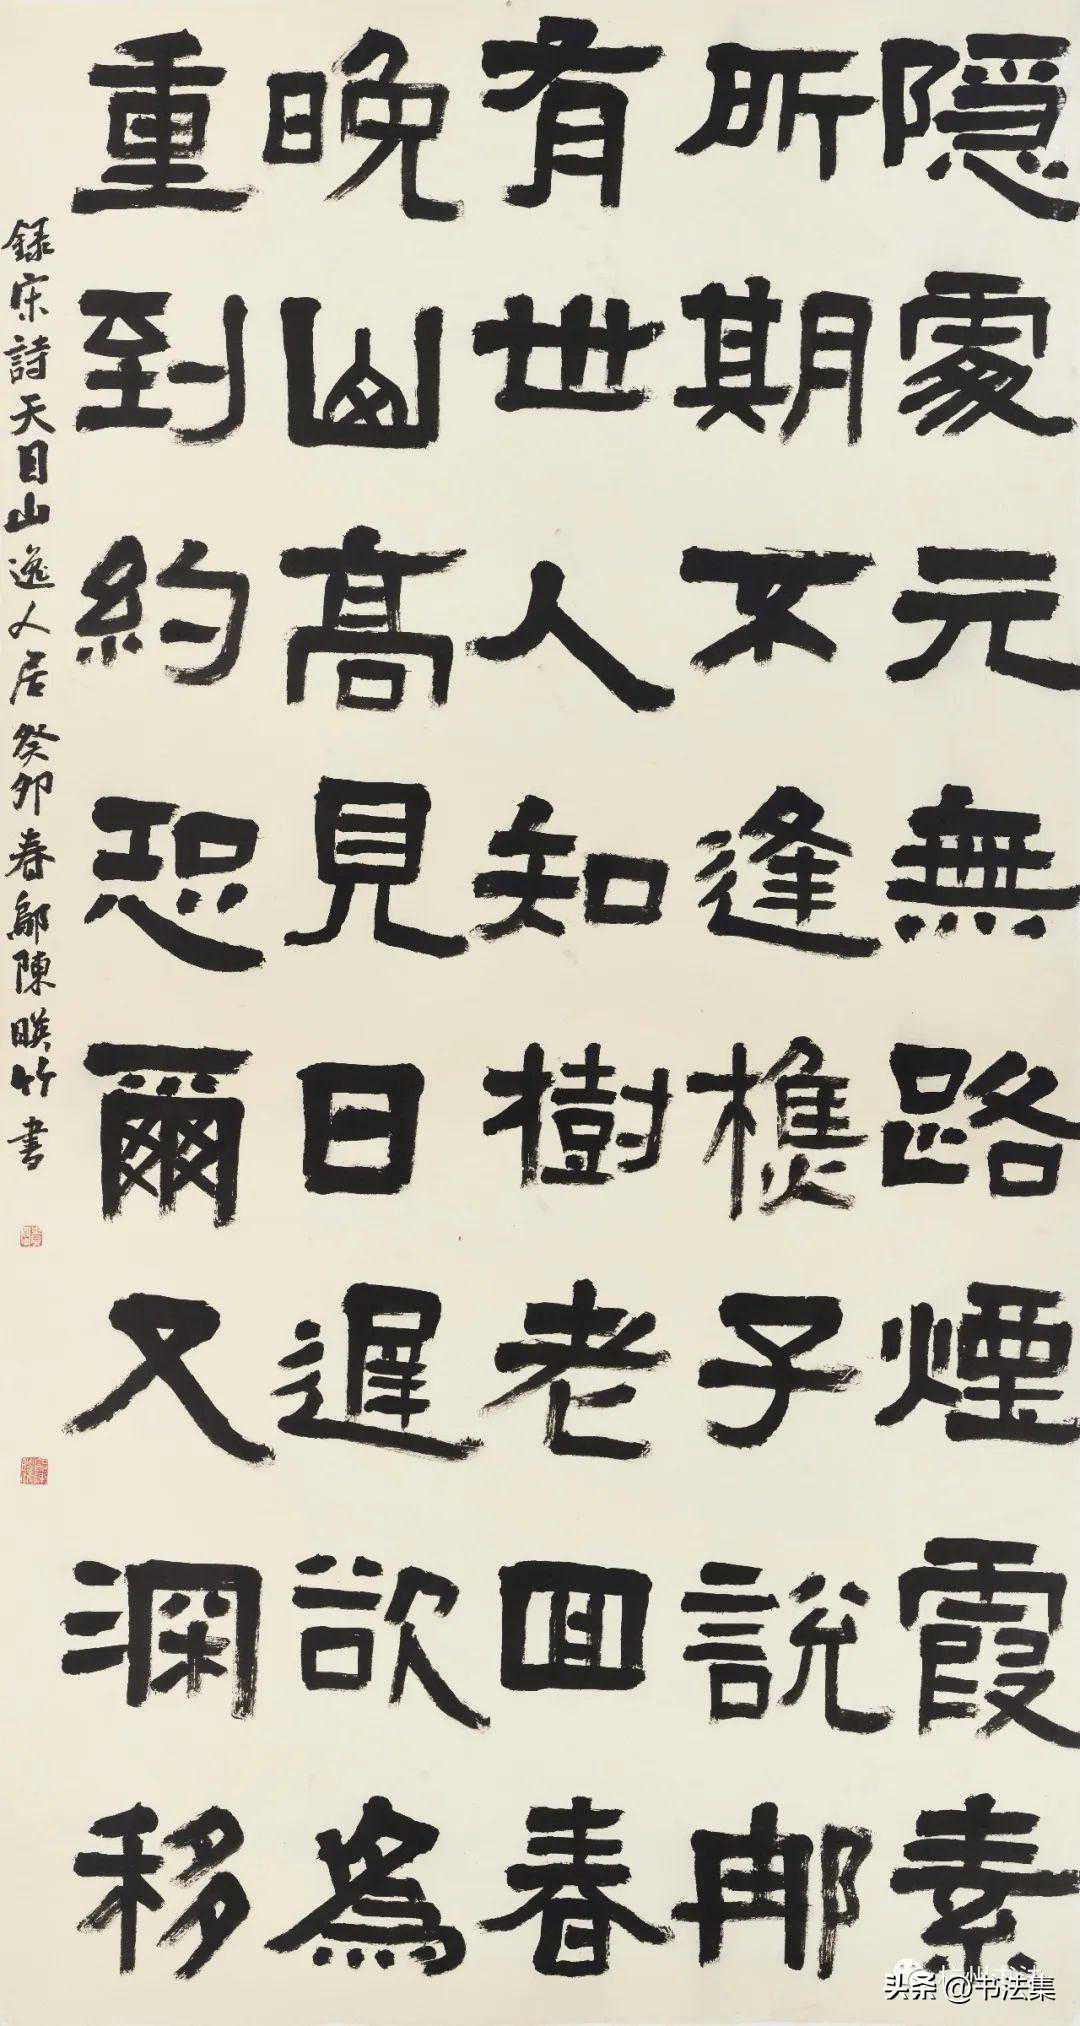 隱處元無路煙霞素
所期不逢樵子說那
有世人知樹老回春
晚山高見日遲欲為
重到約恐爾又深移
錄宋詩天目山逸人居癸卯春鄔陳暎竹書
头条@书法集